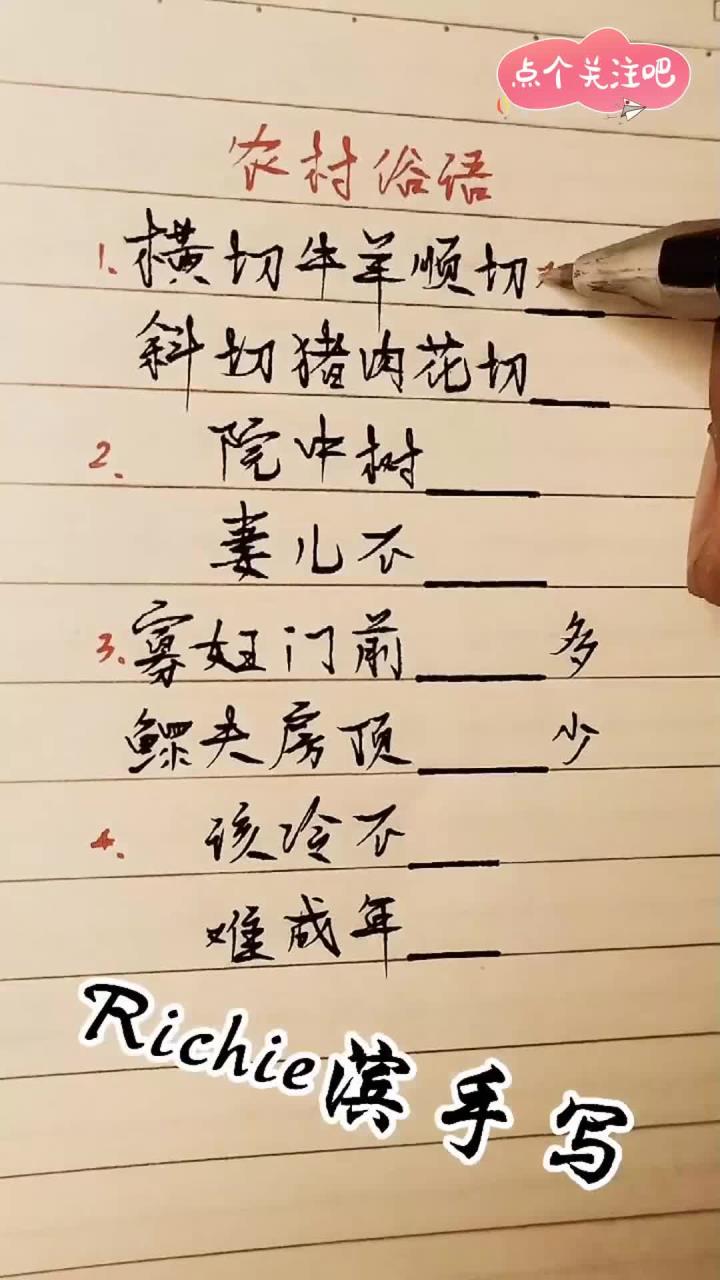 点个关注吧
农村俗语
1、横切牛羊顺切
斜切猪肉花切
2、院中树
妻儿不
3、寡妇门前 多
鳏夫房顶 少
4、该冷不
难成年
Richie滨手写